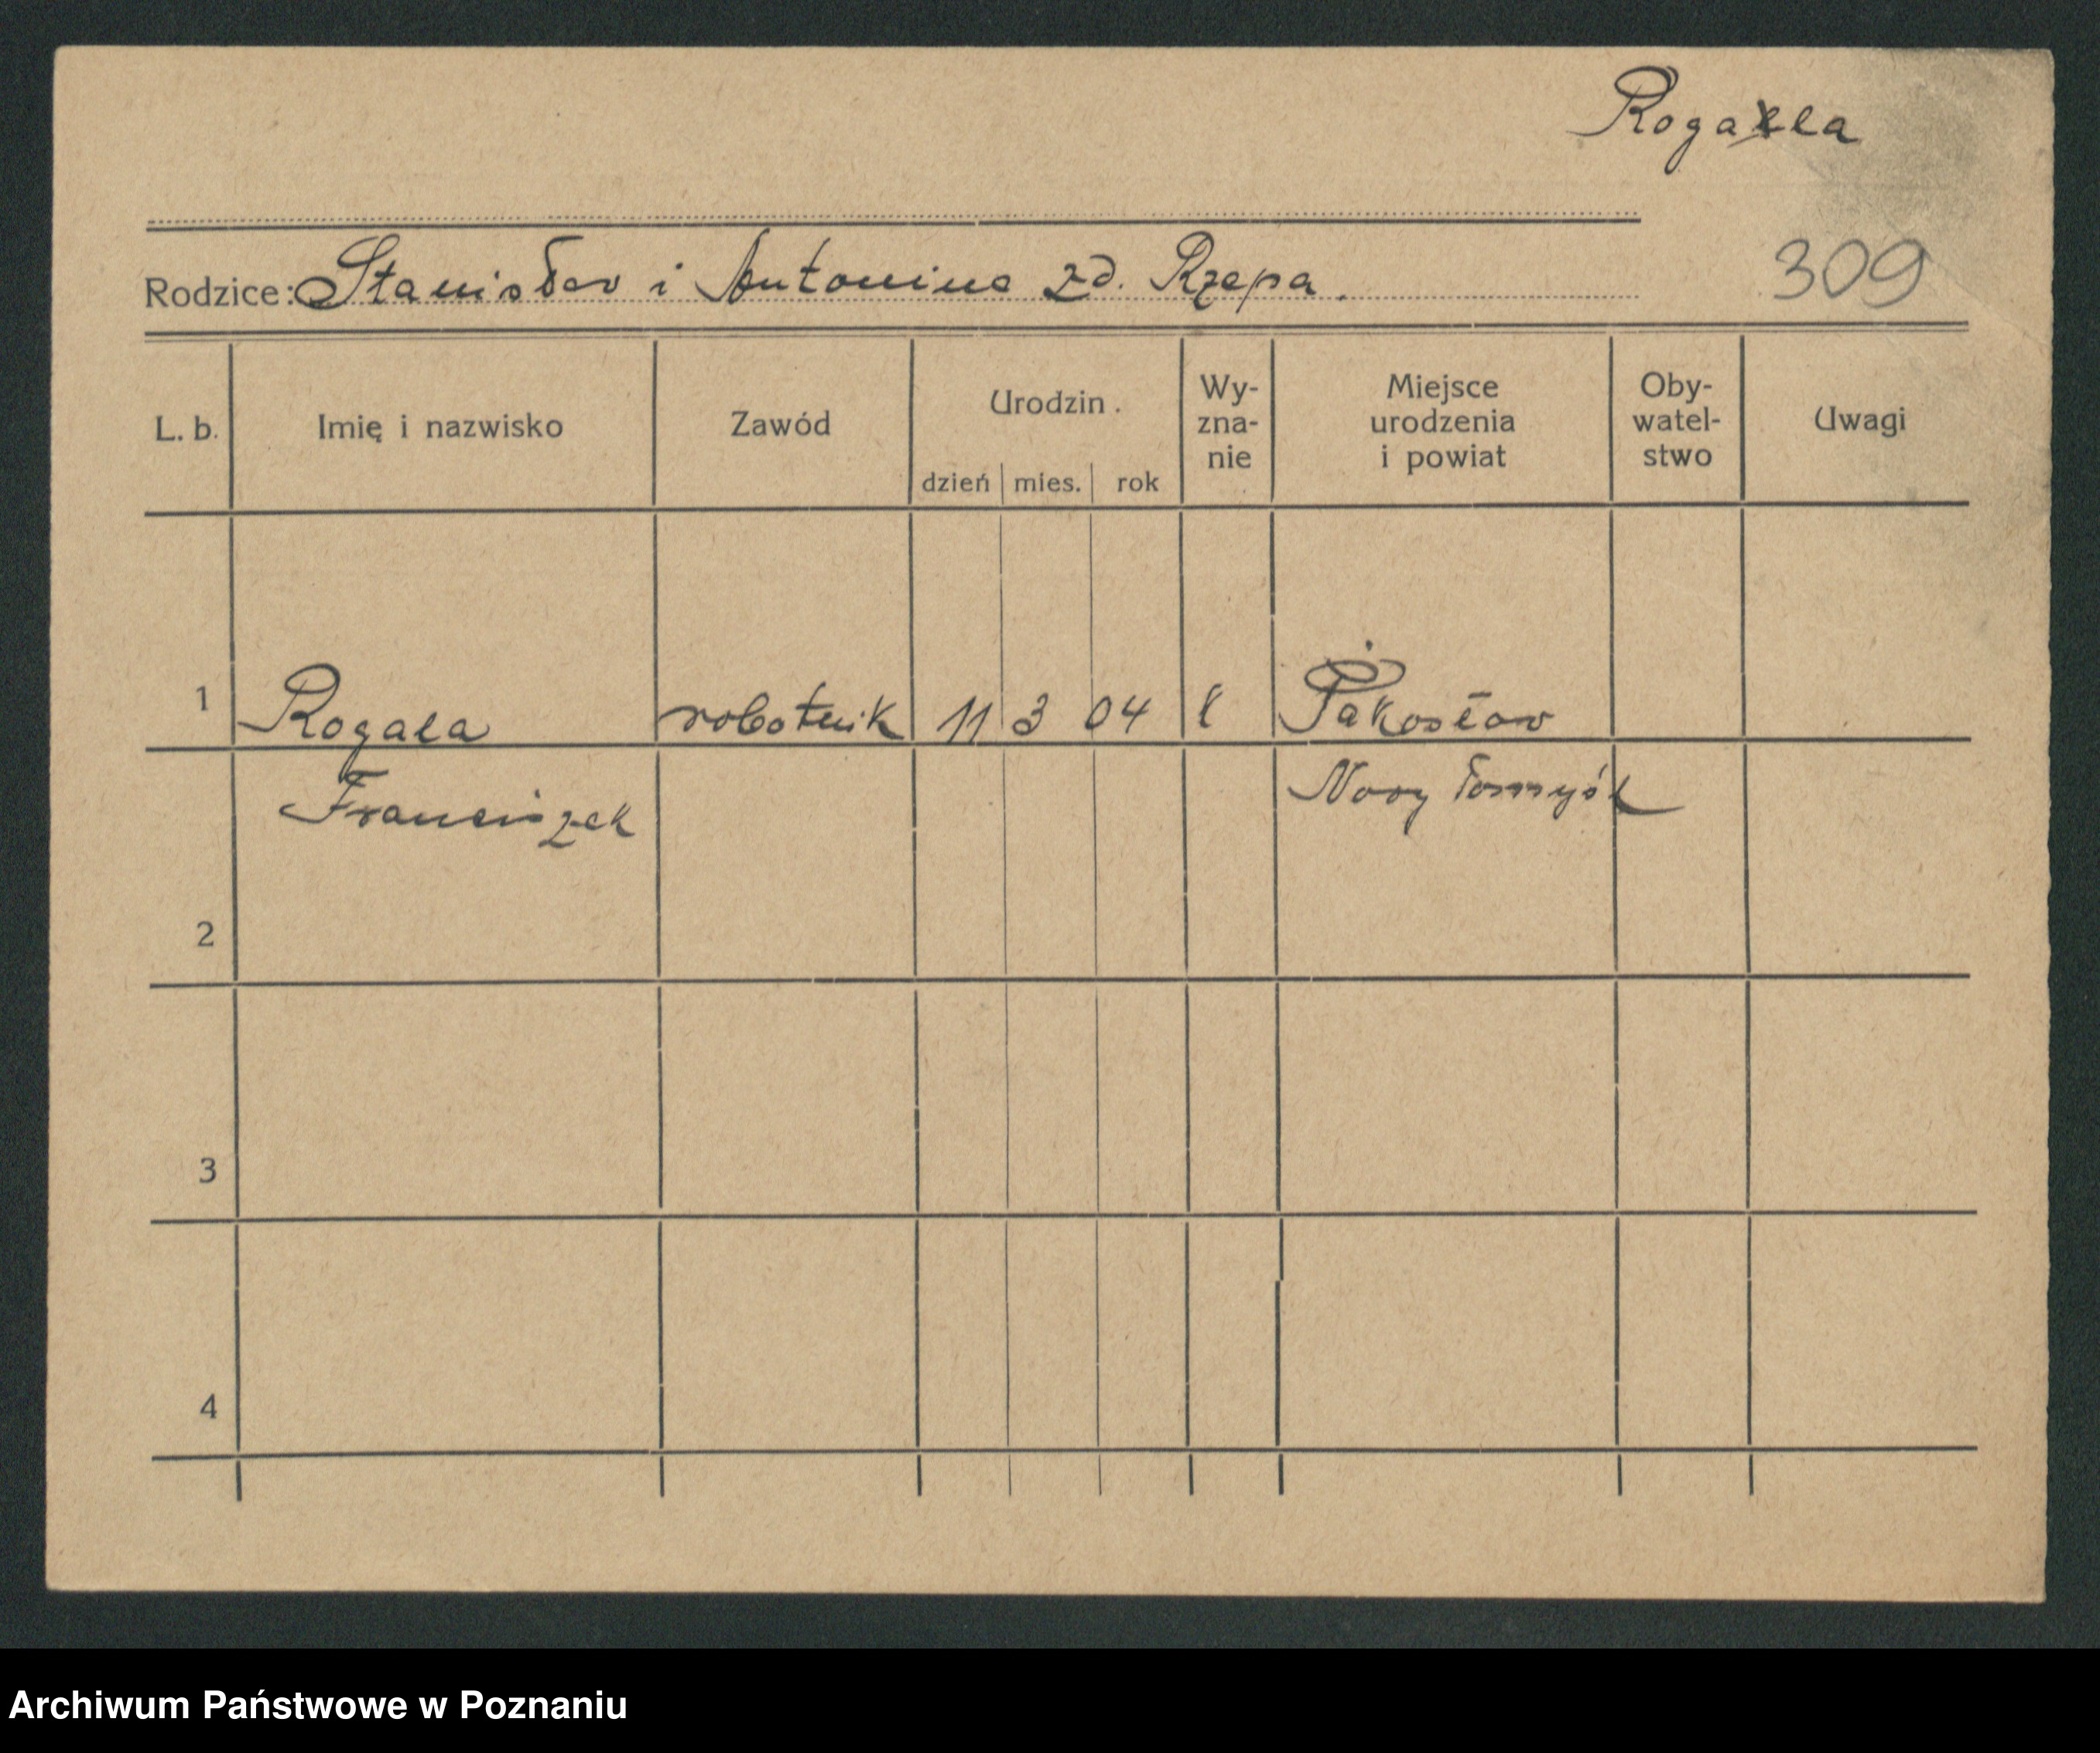 Rogalla
Rodzice: Stanisław i Antonina zd. Rzepa.
309
L. b. Imię i nazwisko Zawód Urodzin. dzień mies. rok Wy-zna-nie Miejsce urodzenia i powiat Oby-watel-stwo Uwagi
1 Rogala robotnik 11 3 04 Pakosław
Franciszek Nowy Tomyśl
2
3
4
Archiwum Państwowe w Poznaniu